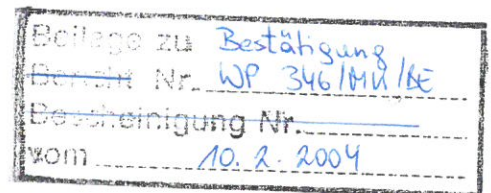 Beilage zu Bestätigung
Bericht Nr. WP 346/MU/BE
Bescheinigung Nr.
vom 10. 2. 2004